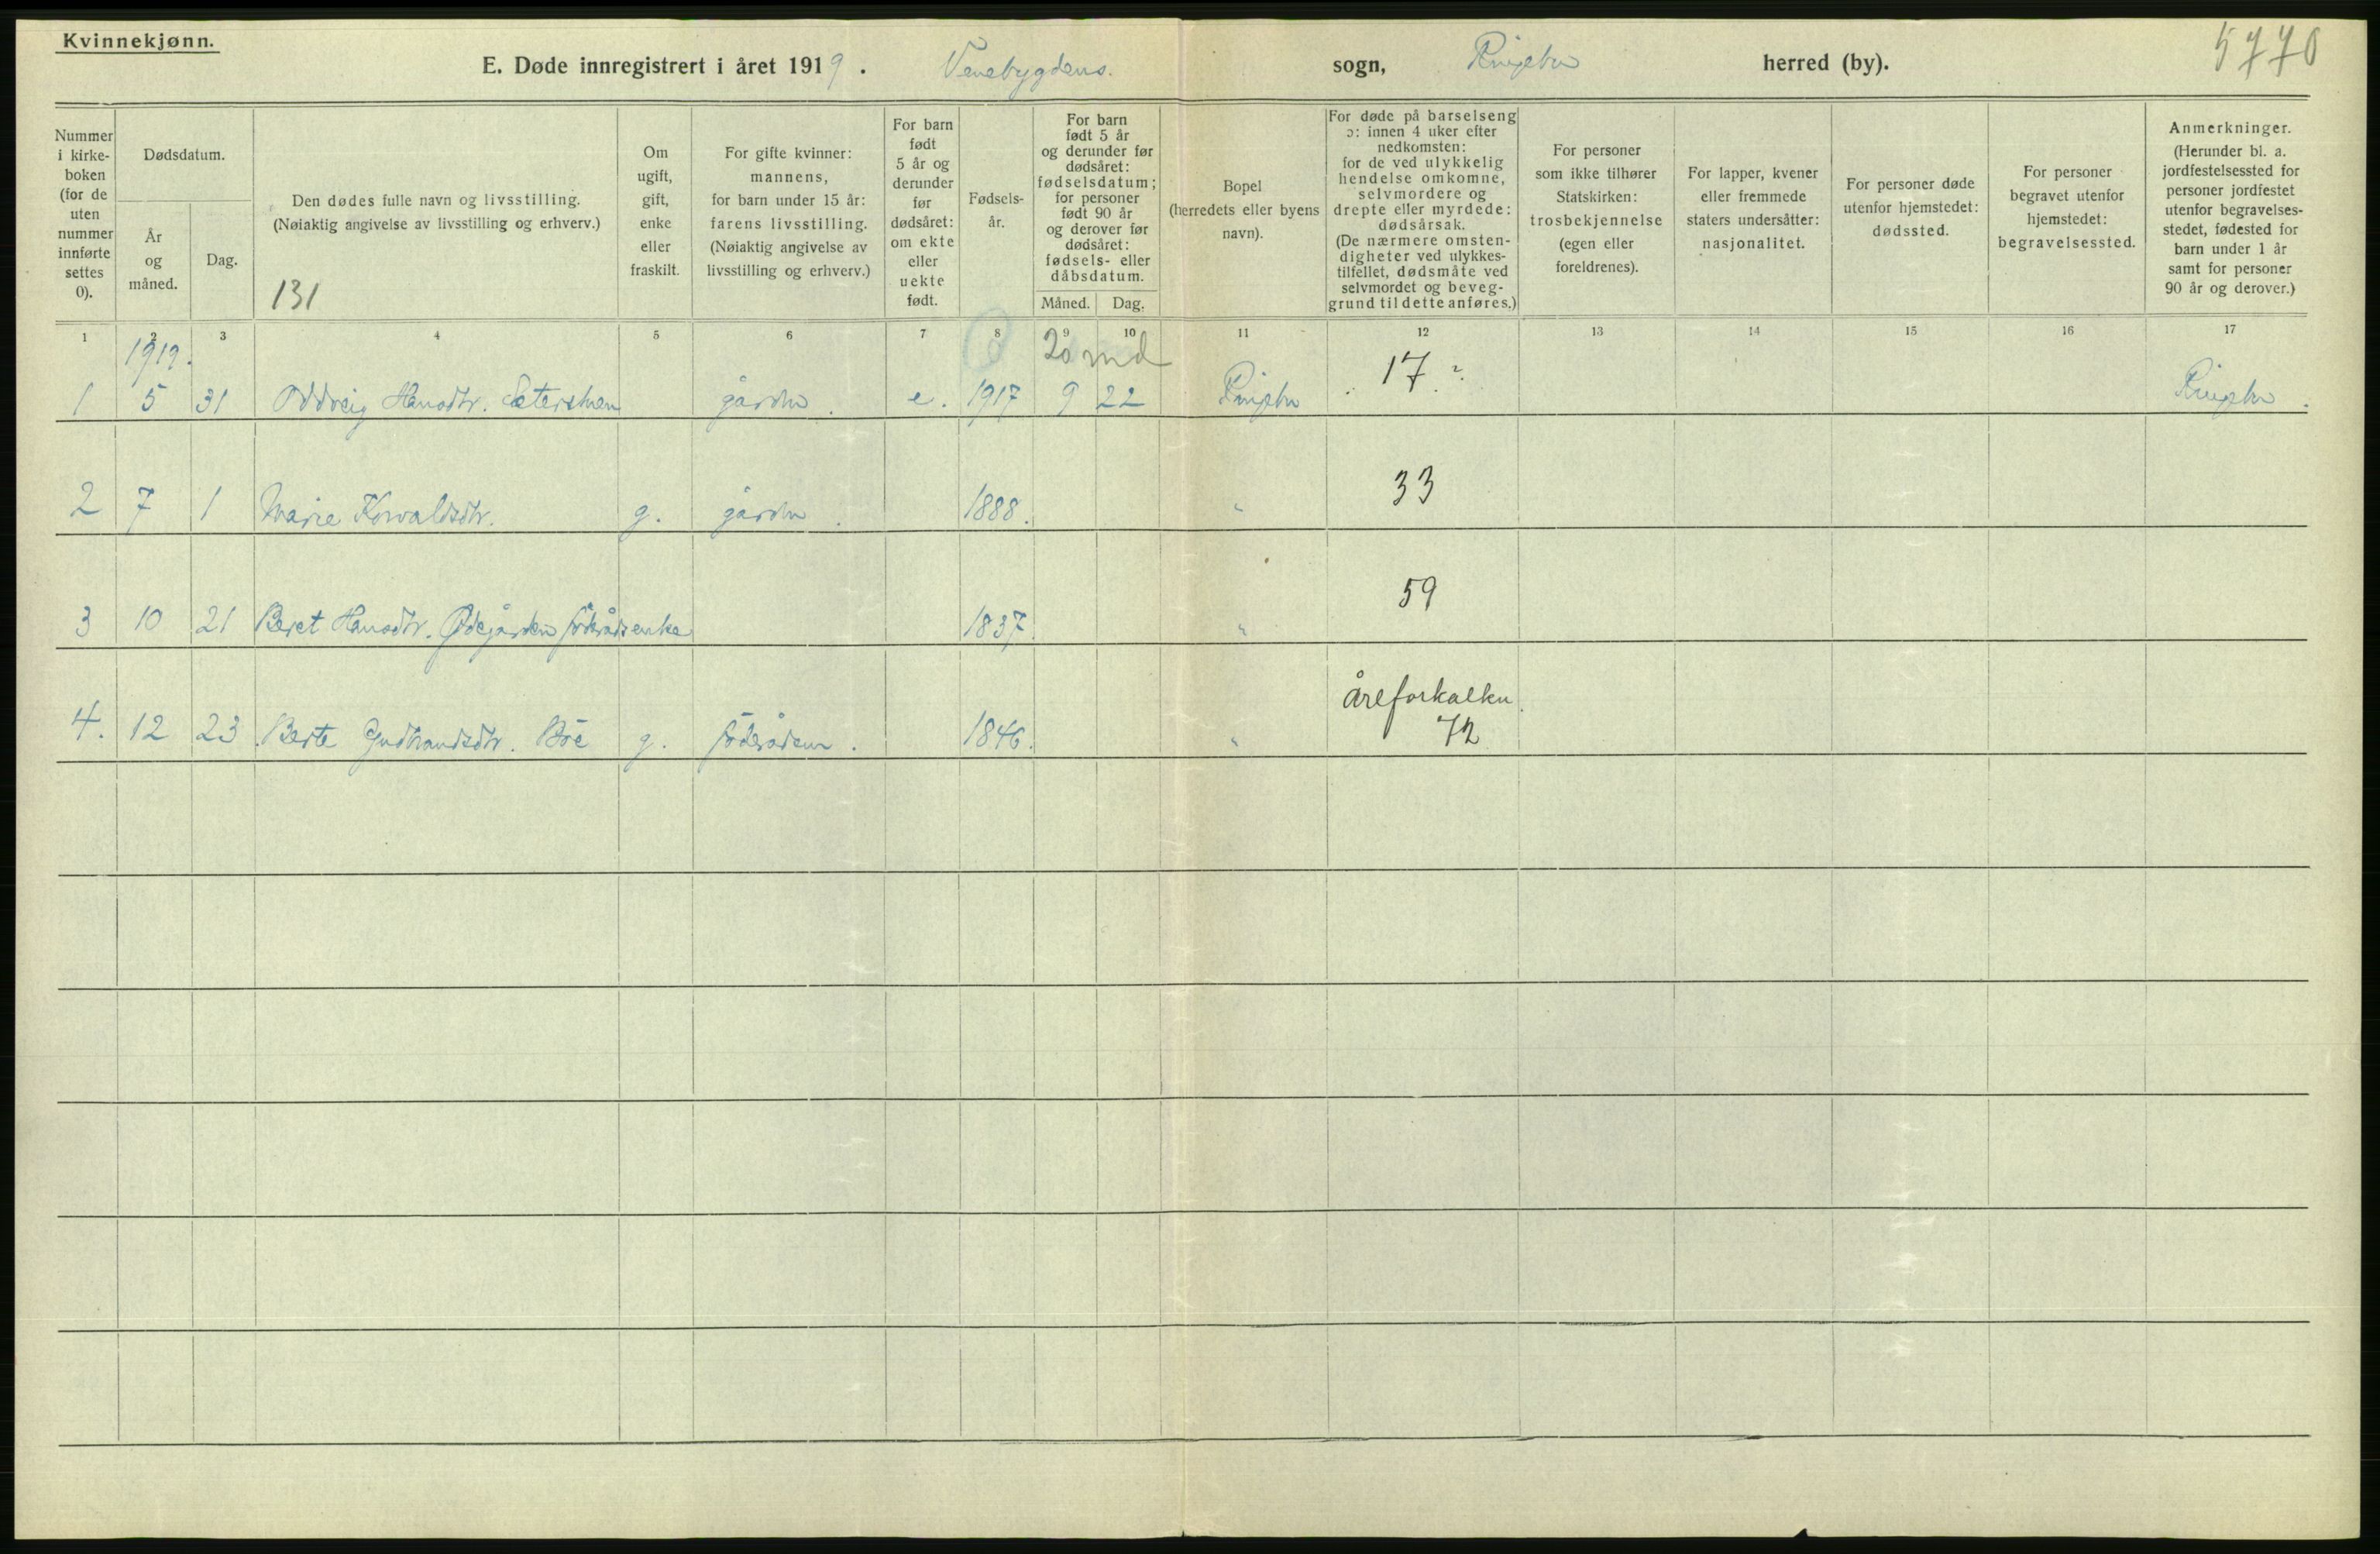 Kvinnekjønn.
5770
E. Døde innregistrert i året 1919. Venebygdens. sogn, Ringebu herred (by).
Nummer i kirke-boken (for de uten nummer innførte settes 0).
Dødsdatum.
År og måned.
Dag.
Den dødes fulle navn og livsstilling.
(Nøiaktig angivelse av livsstilling og erhverv.)
131
Om ugift, gift, enke eller fraskilt.
For gifte kvinner: mannens, for barn under 15 år: farens livsstilling. (Nøiaktig angivelse av livsstilling og erhverv.)
For barn født 5 år og derunder før dødsåret: om ekte eller uekte født.
Fødsels-år.
For barn født 5 år og derunder før dødsåret: fødselsdatum; for personer født 90 år og derover før dødsåret: fødsels- eller dåbsdatum.
Måned. Dag.
Bopel (herredets eller byens navn).
For døde på barselseng ɔ: innen 4 uker efter nedkomsten: for de ved ulykkelig hendelse omkomne, selvmordere og drepte eller myrdede: dødsårsak. (De nærmere omsten-digheter ved ulykkes-tilfellet, dødsmåte ved selvmordet og beveg-grund til dette anføres.)
For personer som ikke tilhører Statskirken: trosbekjennelse (egen eller foreldrenes).
For lapper, kvener eller fremmede staters undersåtter: nasjonalitet.
For personer døde utenfor hjemstedet: dødssted.
For personer begravet utenfor hjemstedet: begravelsessted.
Anmerkninger. (Herunder bl. a. jordfestelsessted for personer jordfestet utenfor begravelses-stedet, fødested for barn under 1 år samt for personer 90 år og derover.)
1 2 3 4 5 6 7 8 9 10 11 12 13 14 15 16 17
1919. 20 md
1 5 31 Oddveig Hansdtr. gårdbr. e. 1917 9 22 Ringebu 17 ? Ringebu.
2 7 1 Marie g. gårdbr. 1888. " 33
3 10 21 Beret Hansdtr. Ødegården föderådsenke 1837. " 59
4. 12 23. Berte Gudbrandsdtr. Böe g. föderådsm. 1846. " åreforkalkn. 72